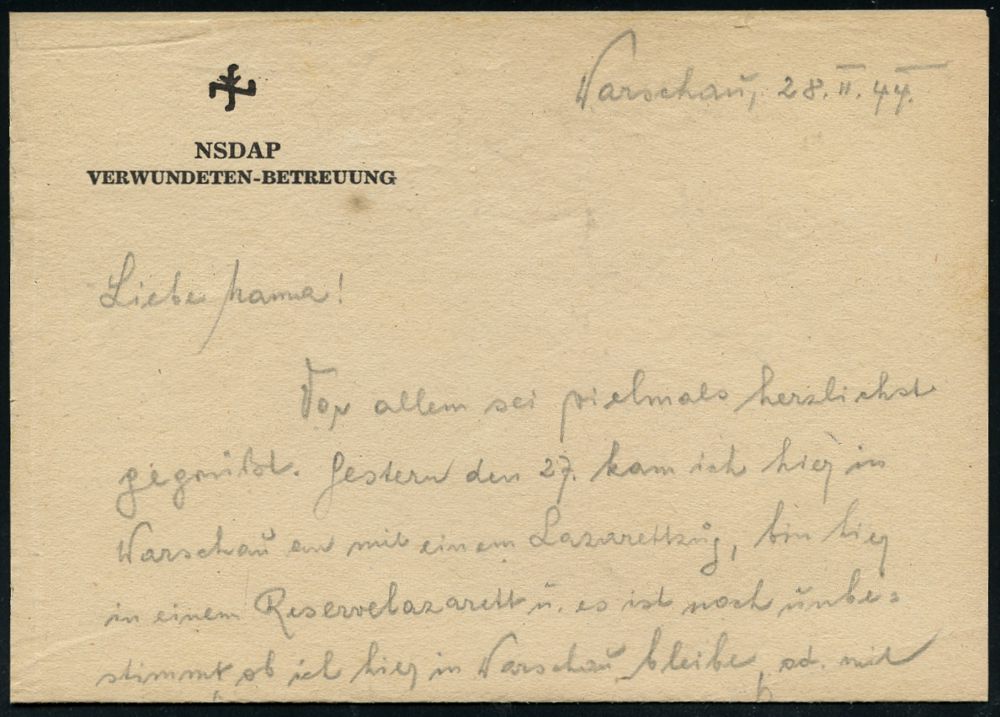 Warschau, 28. II. 44.
NSDAP
VERWUNDETEN-BETREUUNG
Liebe Mama!
Vor allem sei vielmals herzlichst
gegrüßt. Gestern den 27. kam ich hier in
Warschau an mit einem Lazarettzug, bin hier
in einem Reservelazarett u. es ist noch unbe=
stimmt, ob ich hier in Warschau bleibe, od. mit